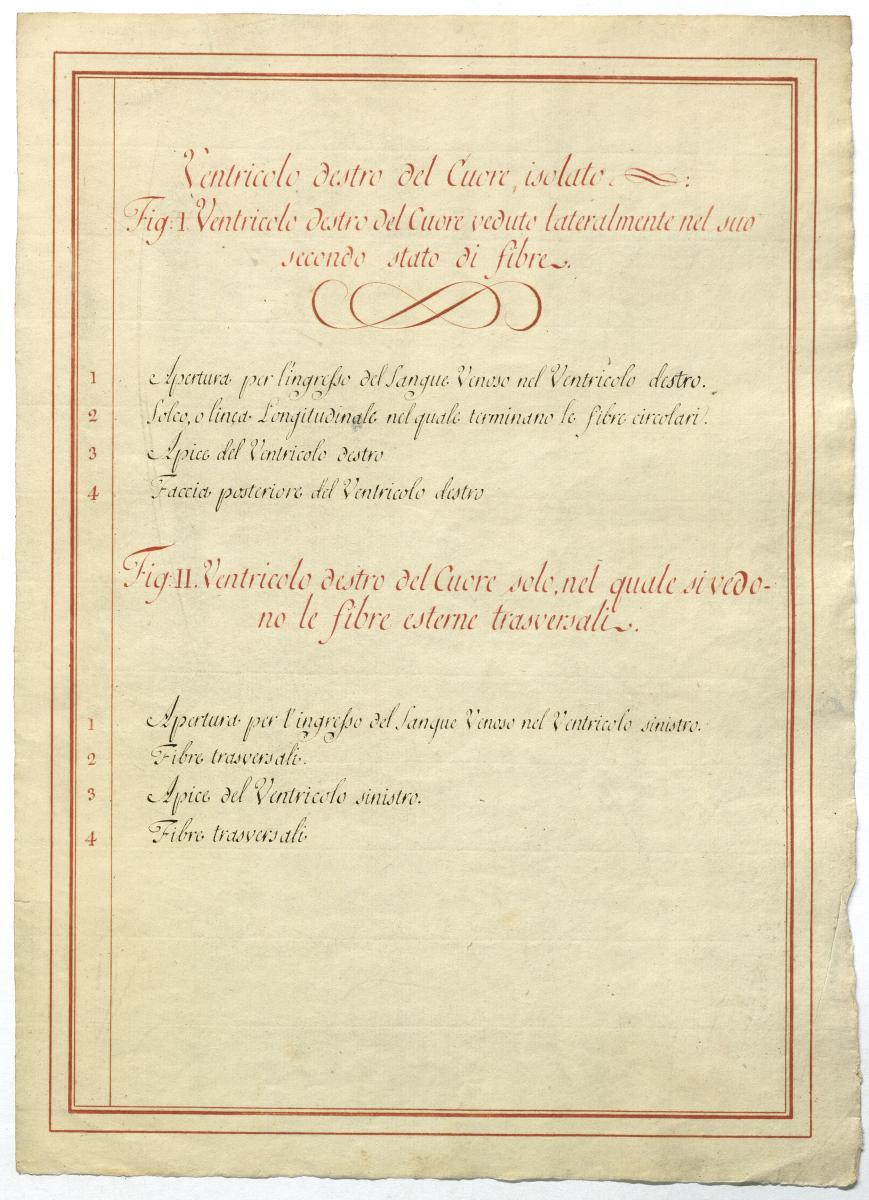 Ventricolo destro del Cuore, isolato.
Fig: I. Ventricolo destro del Cuore veduto lateralmente nel suo
secondo stato di fibre.
1 Apertura per l'ingresso del Sangue Venoso nel Ventricolo destro.
2 Solco, o linea Longitudinale nel quale terminano le fibre circolari.
3 Apice del Ventricolo destro
4 Faccia posteriore del Ventricolo destro
Fig: II. Ventricolo destro del Cuore solo, nel quale si vedo-
no le fibre esterne trasversali.
1 Apertura per l'ingresso del Sangue Venoso nel Ventricolo sinistro.
2 Fibre trasversali.
3 Apice del Ventricolo sinistro.
4 Fibre trasversali